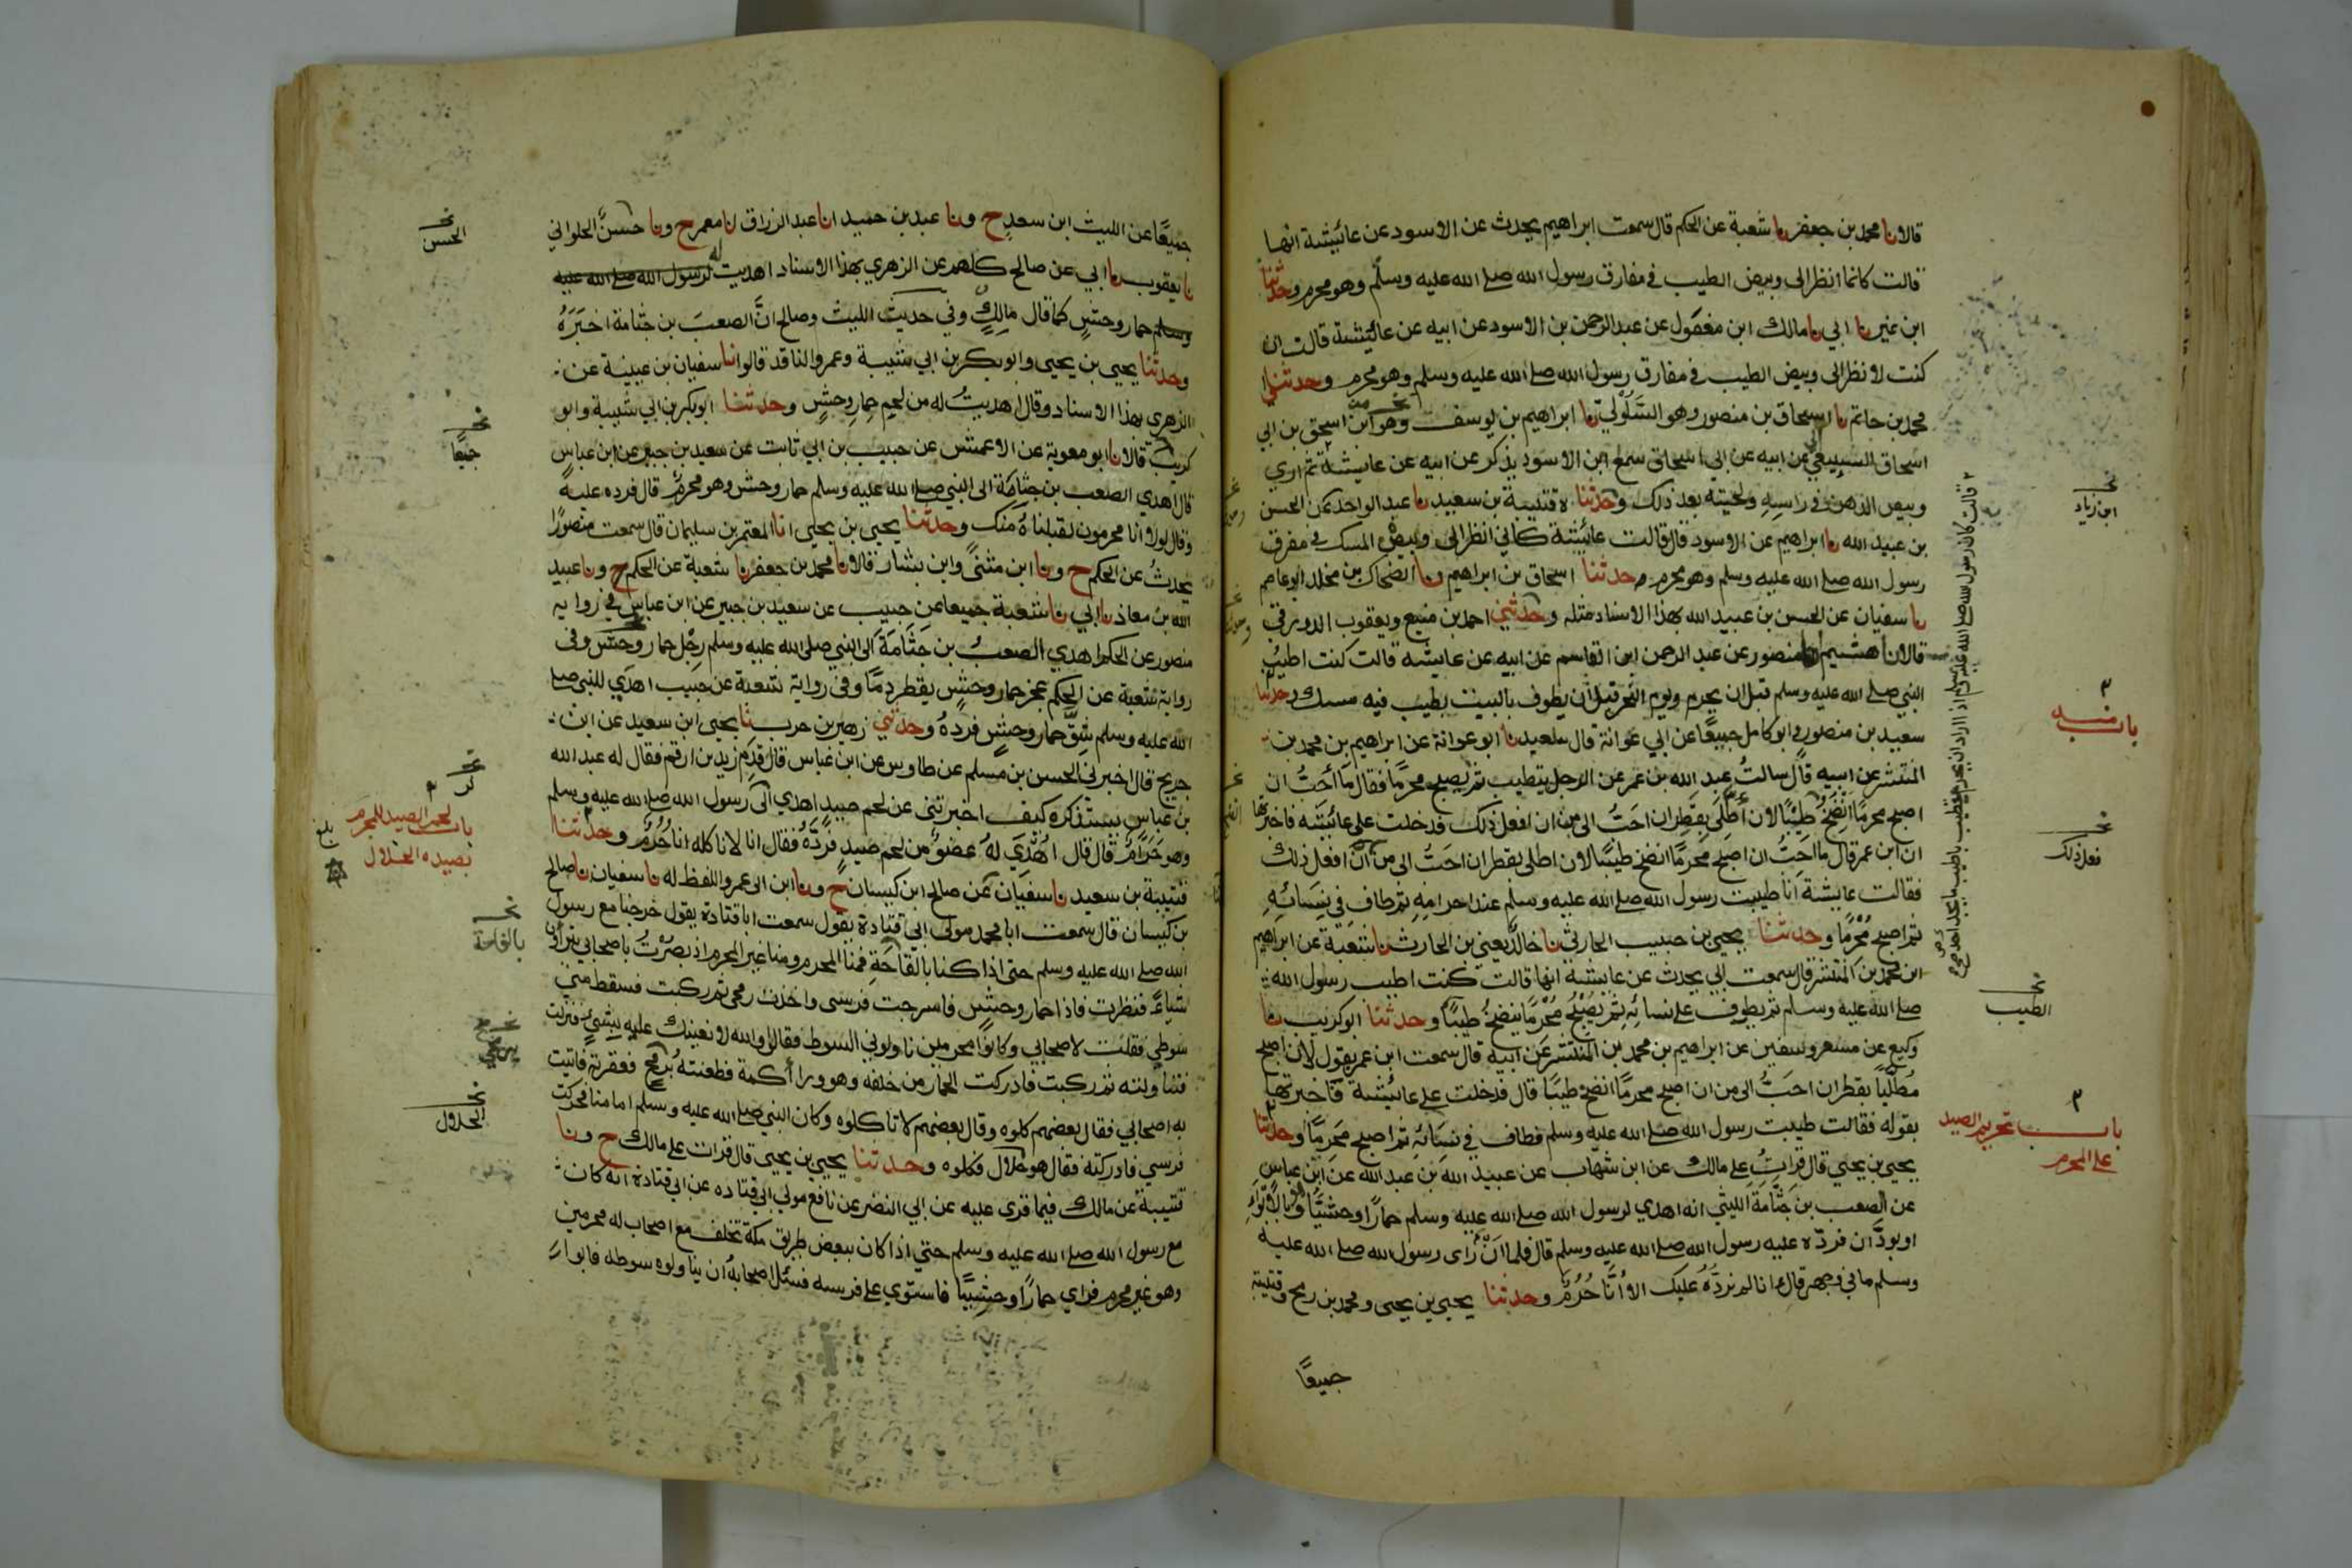 قالا نا محمد بن جعفر نا شعبة عن الحكم قال سمعت ابراهيم يحدث عن الاسود عن عائيشة انها
قالت كانما انظر الى وبيض الطيب في مفارق رسول الله صلى الله عليه وسلم وهو محرم وحدثنا
ابن نمير نا ابي نا مالك ابن مغول عن عبد الرحمن بن الاسود عن ابيه عن عائيشة قالت ان
كنت لانظر الى وبيض الطيب في مفارق رسول الله صلى الله عليه وسلم وهو محرم وحدثني
محمد بن حاتم نا اسحاق بن منصور وهو السلولي نا ابراهيم بن يوسف وهو ابن اسحق بن ابي
اسحاق السبيعي عن ابيه عن ابي اسحاق سمع ابن الاسود يذكر عن ابيه عن عايشة ثم ارى
وبيص الدهن في راسه ولحيته بعد ذلك وحدثنا قتيبة بن سعيد نا عبد الواحد عن الحسن
بن عبيد الله نا ابراهيم عن الاسود قال قالت عائيشة كاني انظر الى وبيض المسك في مفرق
رسول الله صلى الله عليه وسلم وهو محرم وحدثنا اسحاق بن ابراهيم ونا الضحاك بن مخلد ابو عاصم
نا سفيان عن الحسن بن عبيد الله بهذا الاسناد مثله وحدثني احمد بن منيع ويعقوب الدورقي
قالا نا هشيم نا منصور عن عبد الرحمن ابن القاسم عن ابيه عن عايشه قالت كنت اطيب
النبي صلى الله عليه وسلم قبل ان يحرم ويوم النحر قبل ان يطوف بالبيت بطيب فيه مسك وحدثنا
سعيد بن منصور وابو كامل جميعا عن ابي عوانة قال سعيد نا ابو عوانة عن ابراهيم بن محمد بن
المنتشر عن ابيه قال سالت عبد الله بن عمر عن الرجل يتطيب ثم يصبح محرما فقال ما احب ان
اصبح محرما انضخ طيبا لان اطلى بقطران احب الى من ان افعل ذلك فدخلت على عائيشه فاخبرتها
ان ابن عمر قال ما احب ان اصبح محرما انضخ طيبا لان اطلى بقطران احب الى من ان افعل ذلك
فقالت عايشة انا طيبت رسول الله صلى الله عليه وسلم عند احرامه ثم طاف في نسائه
ثم اصبح محرما وحدثنا يحيى بن حبيب الحارثي نا خالد يعني بن الحارث نا شعبة عن ابراهيم
ابن محمد بن المنتشر قال سمعت ابي يحدث عن عايشة انها قالت كنت اطيب رسول الله
صلى الله عليه وسلم ثم يطوف على نسائه ثم يصبح محرما ينضخ طيبا وحدثنا ابو كريب نا
وكيع عن مسعر وسفين عن ابراهيم بن محمد بن المنتشر عن ابيه قال سمعت ابن عمر يقول لان اصبح
مطليا بقطران احب الى من ان اصبح محرما انضخ طيبا قال فدخلت على عائيشة فاخبرتها
بقوله فقالت طيبت رسول الله صلى الله عليه وسلم فطاف في نسائه ثم اصبح محرما وحدثنا
يحيى بن يحيى قال قرات على مالك عن ابن شهاب عن عبيد الله بن عبد الله عن ابن عباس
عن الصعب بن جثامة الليثي انه اهدى لرسول الله صلى الله عليه وسلم حمارا وحشيا وهو بالابواء
او بودان فرده عليه رسول الله صلى الله عليه وسلم قال فلما ان راى رسول الله صلى الله عليه
وسلم ما في وجهه قال انا لم نرده عليك الا انا حرم وحدثنا يحيى بن يحيى ومحمد بن رمح وقتيبة
جميعا
ابن زياد
باب منه
فعل ذلك
الطيب
باب تحريم الصيد
على المحرم
قالت كان رسول الله صلى الله عليه وسلم اذا اراد ان يحرم يتطيب باطيب ما يجد
جميعا عن الليث ابن سعد ح ونا عبد بن حميد انا عبد الرزاق نا معمر ح ونا حسن الحلواني
نا يعقوب نا ابي عن صالح كلهم عن الزهري بهذا الاسناد اهديت له لرسول الله صلى الله عليه
وسلم حمار وحش كما قال مالك وفي حديث الليث وصالح ان الصعب بن جثامة اخبره
وحدثنا يحيى بن يحيى وابو بكر بن ابي شيبة وعمرو الناقد قالوا انا سفيان بن عيينة عن
الزهري بهذا الاسناد وقال اهديت له من لحم حمار وحش وحدثنا ابو بكر بن ابي شيبة وابو
كريب قالا نا ابو معوية عن الاعمش عن حبيب بن ابي ثابت عن سعيد بن جبير عن ابن عباس
قال اهدى الصعب بن جثامة الى النبي صلى الله عليه وسلم حمار وحش وهو محرم قال فرده عليه
وقال لولا انا محرمون لقبلناه منك وحدثنا يحيى بن يحيى انا المعتمر بن سليمان قال سمعت منصورا
يحدث عن الحكم ح ونا ابن مثنى وابن بشار قالا نا محمد بن جعفر نا شعبة عن الحكم ح ونا عبيد
الله بن معاذ نا ابي نا شعبة جميعا عن حبيب عن سعيد بن جبير عن ابن عباس في رواية
منصور عن الحكم اهدى الصعب بن جثامة الى النبي صلى الله عليه وسلم رجل حمار وحش وفى
رواية شعبة عن الحكم عجز حمار وحش يقطر دما وفي رواية شعبة عن حبيب اهدى للنبي صلى
الله عليه وسلم شق حمار وحش فرده وحدثني زهير بن حرب نا يحيى ابن سعيد عن ابن
جريج قال اخبرني الحسن بن مسلم عن طاوس عن ابن عباس قال قدم زيد بن ارقم فقال له عبد الله
بن عباس يستذكره كيف اخبرتنى عن لحم صيد اهدي الى رسول الله صلى الله عليه وسلم
وهو حرام قال قال اهدى له عضو من لحم صيد فرده فقال انا لانا كله انا حرم وحدثنا
قتيبة بن سعيد نا سفيان عن صالح ابن كيسان ح ونا ابن ابى عمر واللفظ له نا سفيان نا صالح
بن كيسان قال سمعت ابا محمد مولى ابي قتادة يقول سمعت ابا قتادة يقول خرجنا مع رسول
الله صلى الله عليه وسلم حتى اذا كنا بالقاحة فمنا المحرم ومنا غير المحرم اذ بصرت باصحابي يتراؤن
شياء فنظرت فاذا حمار وحش فاسرجت فرسى واخذت رمحي ثم ركبت فسقط مني
سوطي فقلت لاصحابي وكانوا محرمين ناولوني السوط فقالوا والله لا نعينك عليه بشئ فنزلت
فتناولته ثم ركبت فادركت الحمار من خلفه وهو ورا أكمة فطعنته برمح فعقرته فاتيت
به اصحابي فقال بعضهم كلوه وقال بعضهم لا تاكلوه وكان النبي صلى الله عليه وسلم امامنا فحركت
فرسي فادركته فقال هو حلال فكلوه وحدثنا يحيى بن يحيى قال قرات على مالك ح ونا
قتيبة عن مالك فيما قرى عليه عن ابي النضر عن نافع مولى ابي قتاده عن ابي قتادة انه كان
مع رسول الله صلى الله عليه وسلم حتى اذا كان ببعض طريق مكة تخلف مع اصحاب له محرمين
وهو غير محرم فراى حمارا وحشيا فاستوى على فرسه فسئل اصحابه ان يناولوه سوطه فابوا
الحسن
جميعا
باب لحم الصيد للمحرم
بصيده الحلال
بلغ
بالقاحة
الحلال